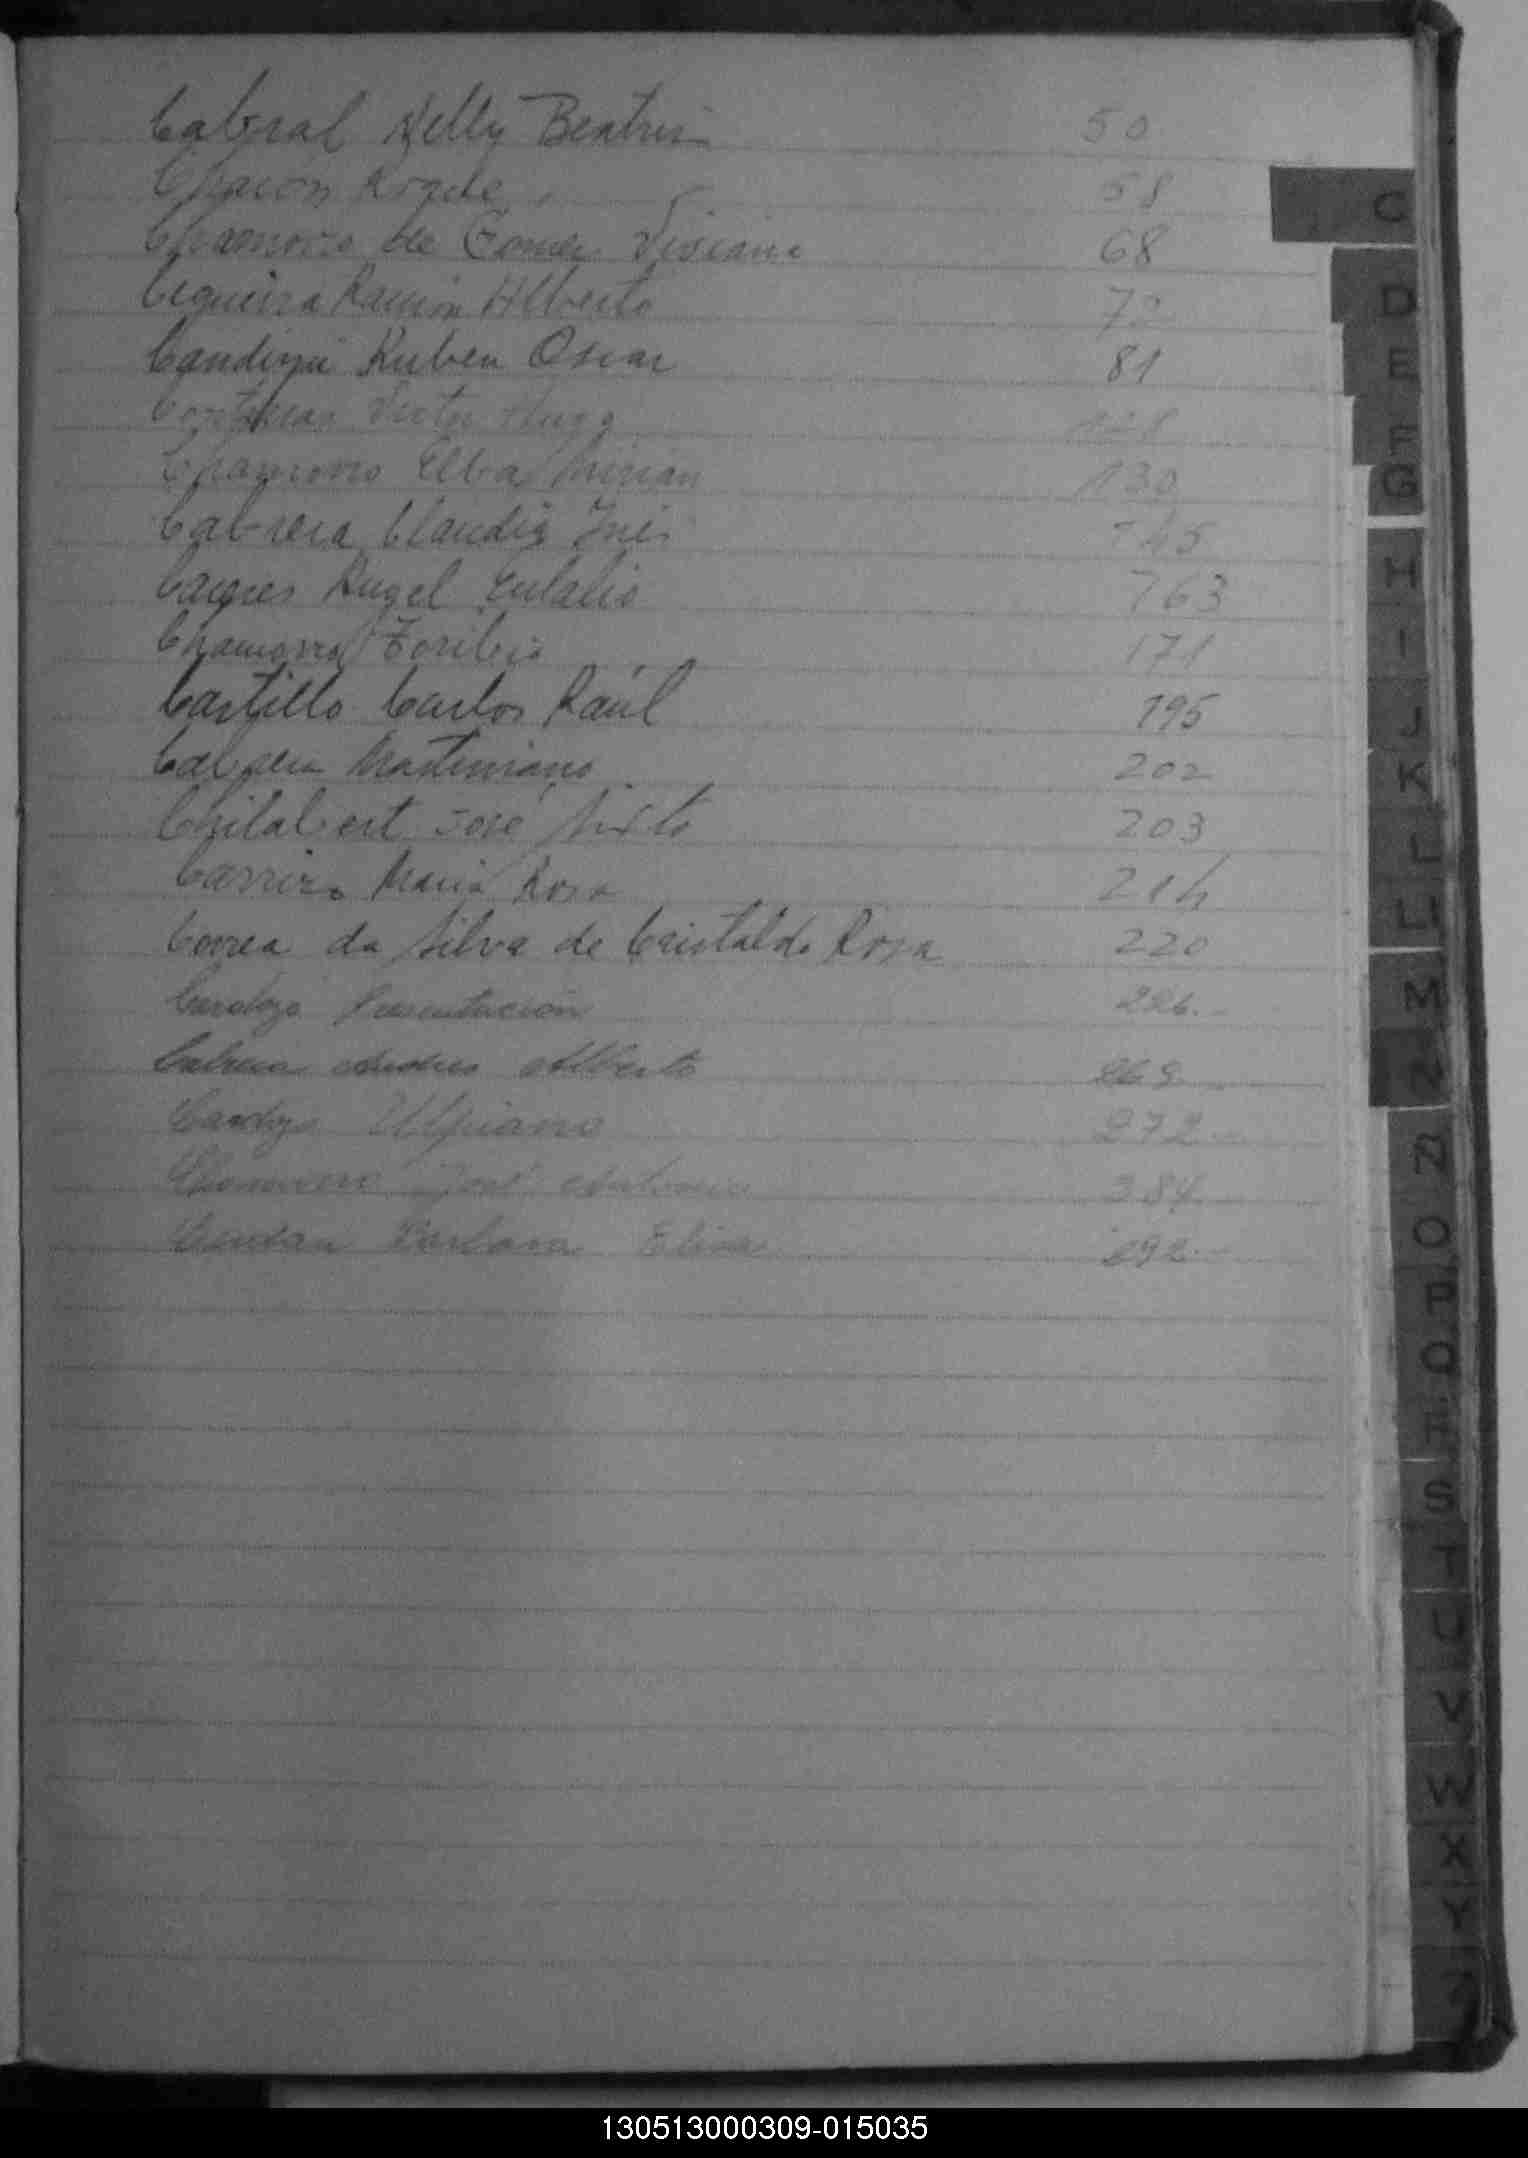 Cabral Nelly Beatriz 50
Chacon Roque 58
Chamorro de Gomez Viviana 68
Cequeira Ramón Alberto 72
Candia Ruben Oscar 81
Victor Hugo 128
Chamorro Elba Mirian 130
Cabrera Claudia Inés 145
Angel Eulalio 163
Chamorro Toribio 171
Castillo Carlos Raúl 195
Cabrera Martiniano 202
Chilabert José Sixto 203
Carrizo Maria Rosa 214
Correa da Silva de Cristaldo Rosa 220
Cardozo Presentación 226.-
Cabrera Andres Alberto 269
Cardozo Ulpiano 272.-
José Antonio 384
Barbara Elisa 292.-
C
D
E
F
G
H
I
J
K
L
LL
M
N
Ñ
O
P
Q
R
S
T
U
V
W
X
Y
Z
130513000309-015035